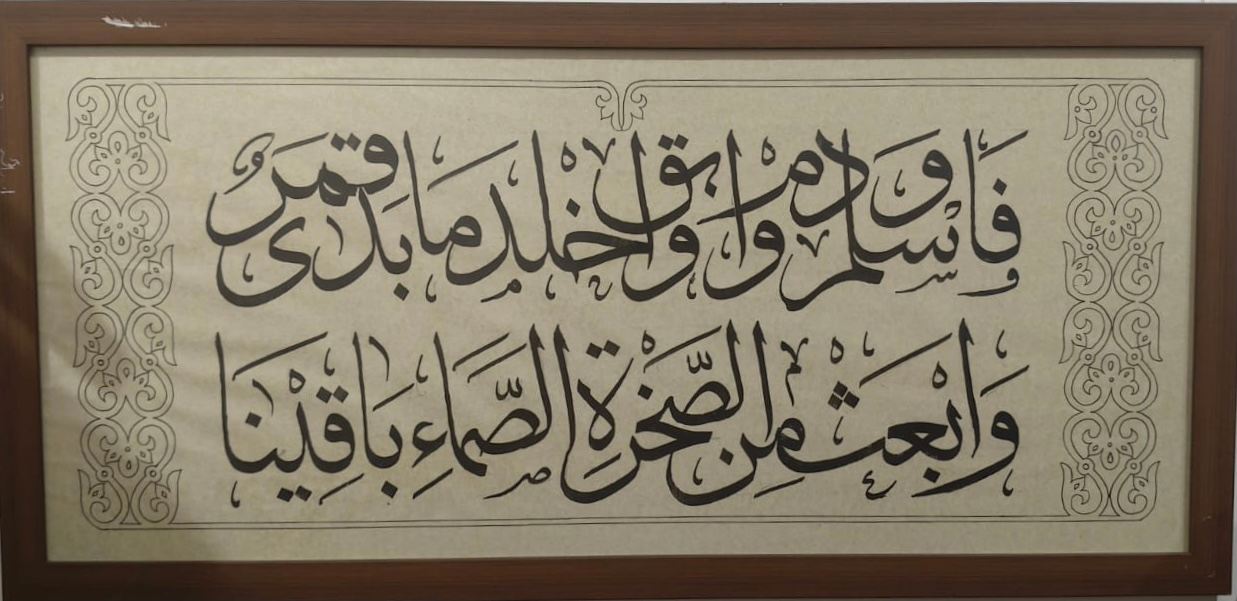 فَاسْلم ودم وابق واخلد مَا بَدى قمَرٌ
وَابْعَث مِن الصَّخْرَةِ الصَّماءِ بَاقِيْنَا